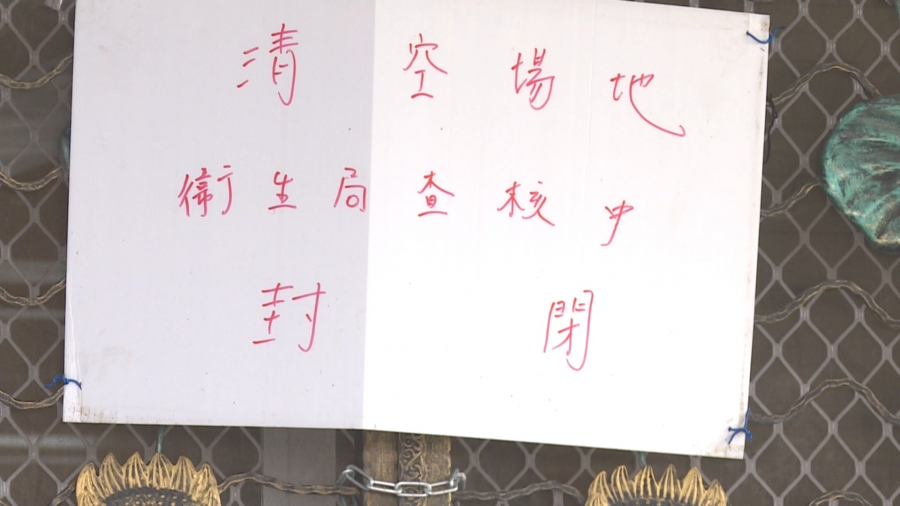 清空場地
衛生局查核中
封閉